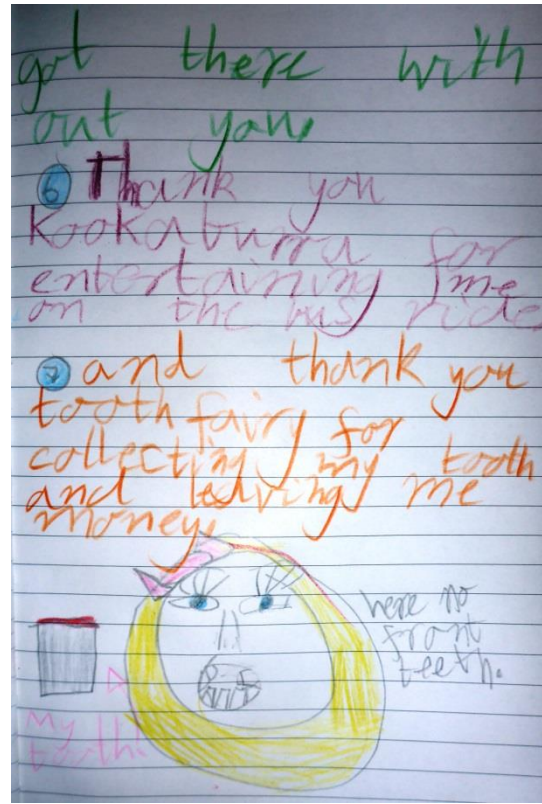 got there with
out you.
6 Thank you
Kookaburra for
entertaining me
on the bus ride
7 and thank you
tooth fairy for
collecting my tooth
and leaving me
money.
here no
front
teeth.
my
tooth!